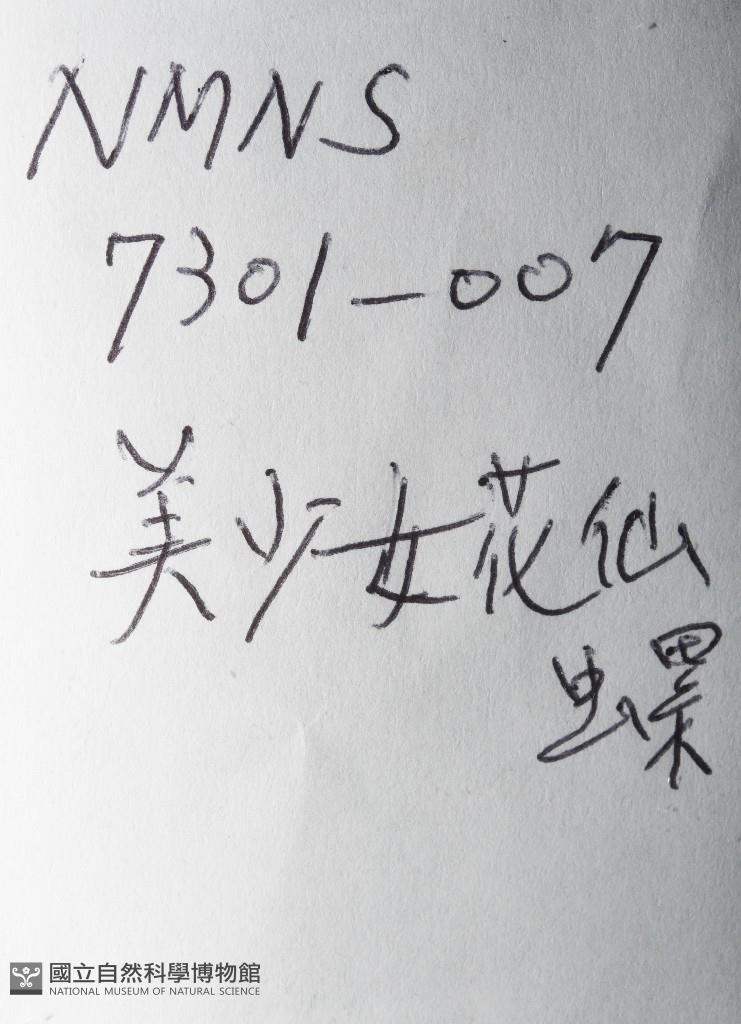 NMNS
7301-007
美少女花仙
螺
國立自然科學博物館
NATIONAL MUSEUM OF NATURAL SCIENCE